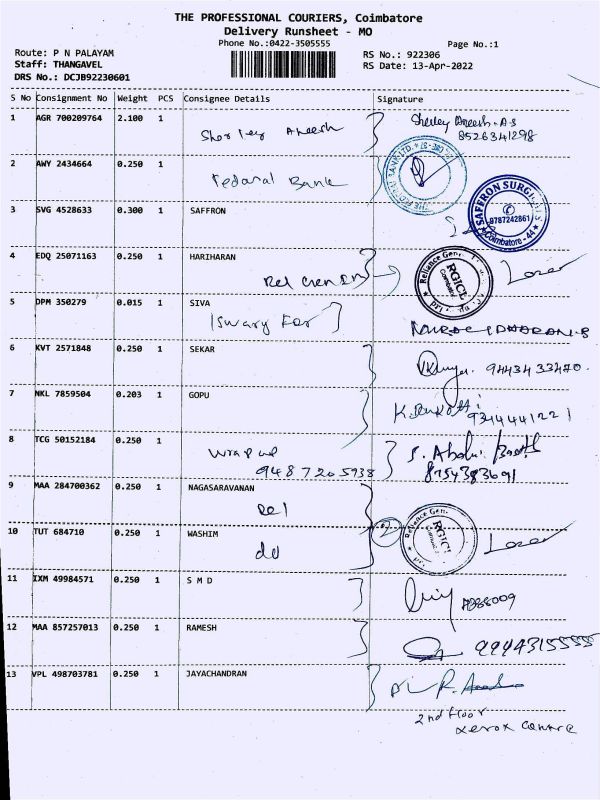 THE PROFESSIONAL COURIERS, Coimbatore
Delivery Runsheet - MO
Phone No.:0422-3505555
Page No.:1
Route: P N PALAYAM
Staff: THANGAVEL
DRS No.: DCJB92230601
RS No.: 922306
RS Date: 13-Apr-2022
S No Consignment No Weight PCS Consignee Details Signature
1 AGR 700209764 2.100 1
Sherley Aneesh
Sherley Aneesh.A.S
8526341298
2 AWY 2434664 0.250 1
Federal Bank
3 SVG 4528633 0.300 1 SAFFRON
SAFFRON SURGICALS
9787242861
Coimbatore - 44
4 EDQ 25071163 0.250 1 HARIHARAN
Rel Gen In
Reliance Gen
RGICL
Coimbatore
5 DPM 350279 0.015 1 SIVA
Iswary For
6 KVT 2571848 0.250 1 SEKAR
9443433470.
7 NKL 7859504 0.203 1 GOPU
9344441221
8 TCG 50152184 0.250 1
Wrap up
9487205938
S. Abdul
8754383691
9 MAA 284700362 0.250 1 NAGASARAVANAN
Rel
10 TUT 684710 0.250 1 WASHIM
do
2
Reliance Gen
RGICL
Coimbatore
11 IXM 49984571 0.250 1 S M D
12 MAA 857257013 0.250 1 RAMESH
9994315555
13 VPL 498703781 0.250 1 JAYACHANDRAN
2nd floor
xerox centre